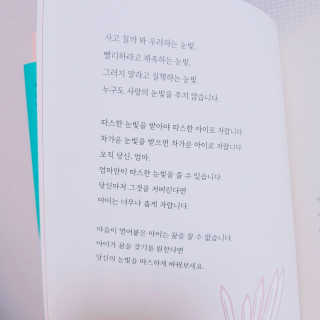 사고 칠까 봐 우려하는 눈빛,
빨리하라고 재촉하는 눈빛,
그러지 말라고 질책하는 눈빛,
누구도 사랑의 눈빛을 주지 않습니다.
따스한 눈빛을 받아야 따스한 아이로 자랍니다.
차가운 눈빛을 받으면 차가운 아이로 자랍니다.
오직 당신, 엄마,
엄마만이 따스한 눈빛을 줄 수 있습니다.
당신마저 그것을 저버린다면
아이는 너무나 춥게 자랍니다.
마음이 얼어붙은 아이는 꿈을 꿀 수 없습니다.
아이가 꿈을 갖기를 원한다면
당신의 눈빛을 따스하게 바꿔보세요.